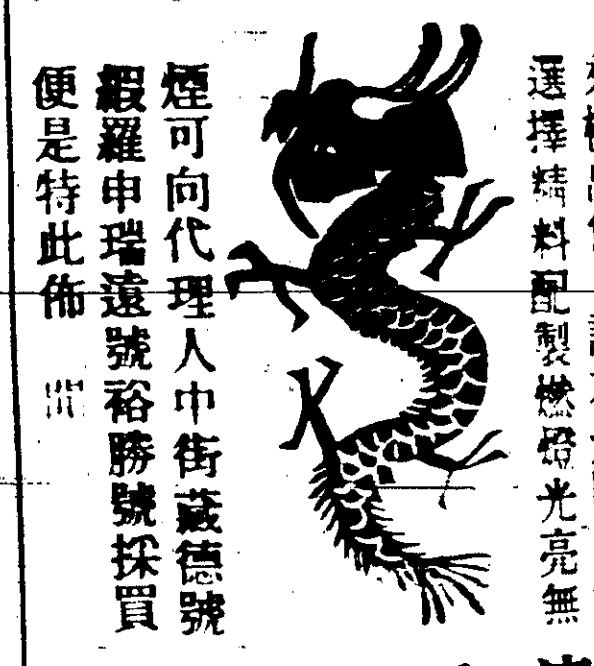 選擇精料配製燃燈光亮無
煙可向代理人中街葳德號
緞羅申瑞遠號裕勝號採買
便是特此佈 聞